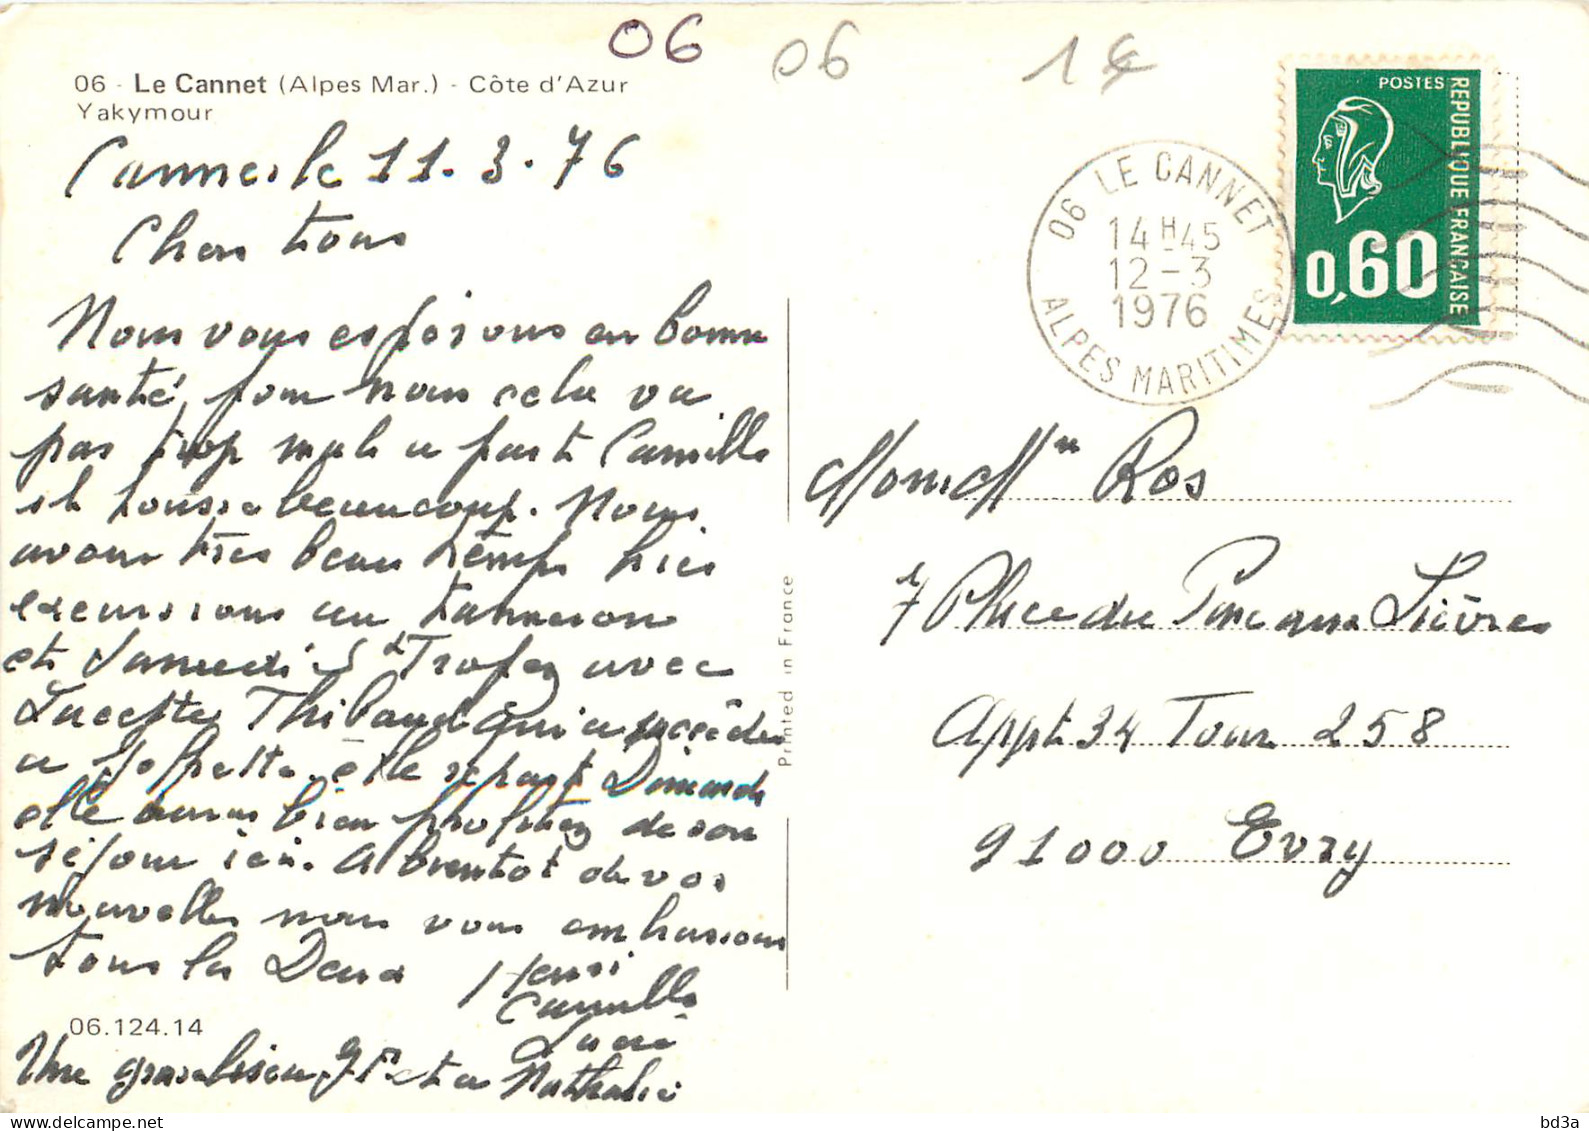 06 06 1€
06 - Le Cannet (Alpes Mar.) - Côte d'Azur
Yakymour
Cannes le 11.3.76
Chers tous
Nous vous espérons en bonne
santé, pour nous cela va
pas trop mal a part Camille
il tousse beaucoup. Nous
avons très beau temps hier
excursions au Tanneron
et Samedi St Tropez avec
Lucette Thibaud qui a succédée
a elle repart Dimanche
elle auras bien profitez de son
séjour ici. A bientot de vos
nouvelles nous vous embrassons
tous les Deux Henri
Camille
Lucie
06.124.14
Une gros bisou et a Nathalie
Printed in France
POSTES
REPUBLIQUE FRANCAISE
0,60
06 LE CANNET
14H45
12-3
1976
ALPES MARITIMES
Ros
7 Place du Parc aux Lièvres
Appt 34 Tour 258
91000 Evry
bd3a